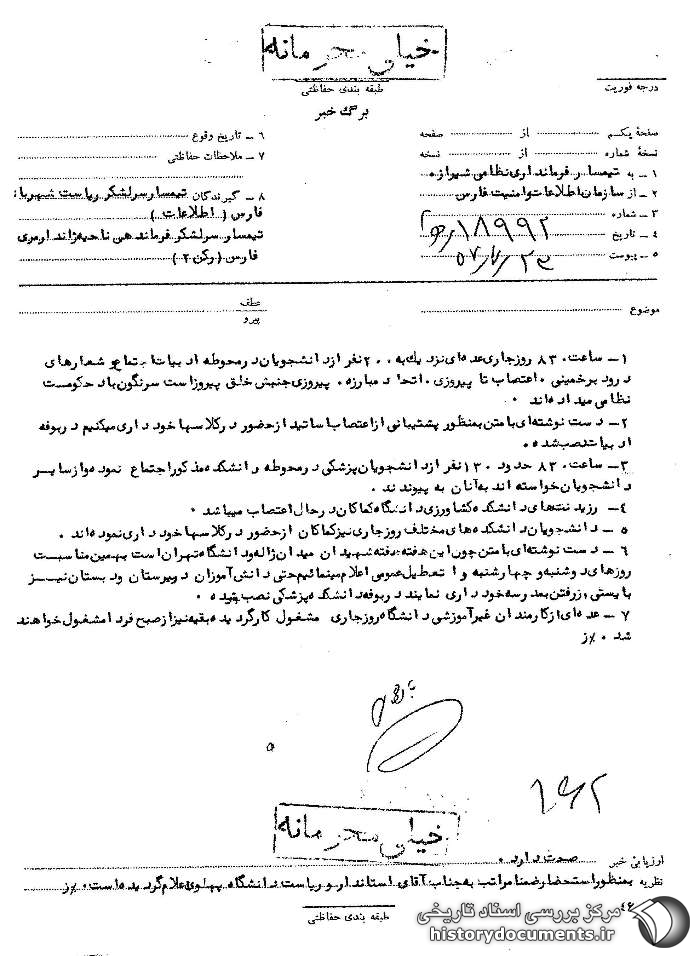 خیلی محرمانه
طبقه بندی حفاظتی
درجه فوریت
برگ خبر
صفحهٔ یکم از صفحه
نسخهٔ شماره از نسخه
۱ – به تیمسار فرمانداری نظامی شیراز
۲ – از سازمان اطلاعات و امنیت فارس
۳ – شماره ۱۸۹۹۲
۴ – تاریخ
۵ – پیوست
۶ – تاریخ وقوع
۷ – ملاحظات حفاظتی
۸ – گیرندگان تیمسار سرلشگر ریاست شهربانی
فارس ( اطلاعات )
تیمسار سرلشگر فرمانده ناحیه ژاندارمری
فارس ( رکن ۲ )
موضوع
عطف
پیرو
۱– ساعت ۸۳۰ روزجاری عده‌ای نزدیک به ۲۰۰ نفر از دانشجویان در محوطه ادبیات اجتماع و شعارهای
درود بر خمینی ۰ اعتصاب تا پیروزی ۰ اتحاد مبارزه ۰ پیروزی جنبش خلق پیروز است سرنگون باد حکومت
نظامی میداده‌اند ۰
۲– دست نوشته‌ای با متن بمنظور پشتیبانی از اعتصاب اساتید از حضور در کلاسها خود داری میکنیم در بوفه
ادبیات نصب شده ۰
۳– ساعت ۸۲۰ حدود ۱۳۰ نفر از دانشجویان پزشکی در محوطه دانشکده مذکور اجتماع نموده و از سایر
دانشجویان خواسته اند به آنان به پیوندند ۰
۴– رزیدنتهای دانشکده کشاورزی دانشگاه کماکان در حال اعتصاب میباشد ۰
۵ – دانشجویان دانشکده های مختلف روزجاری نیز کماکان از حضور در کلاسها خود داری نموده اند ۰
۶ – دست نوشته‌ای با متن چون این هفته هفته شهیدان میدان ژاله و دانشگاه تهران است بهمین مناسبت
روزهای دوشنبه و چهارشنبه را تعطیل عمومی اعلام مینمائیم حتی دانش آموزان دبیرستان و دبستان نیز
بایستی از رفتن بمدرسه خود داری نمایند در بوفه دانشکده پزشکی نصب شده ۰
۷ – عده ای از کارمندان غیر آموزشی دانشگاه روزجاری مشغول کار گردیده بقیه نیز از صبح فردا مشغول خواهند
شد ۰ /ز
خیلی محرمانه
ارزیابی خبر صحت دارد ۰
نظریه بمنظور استحضار ضمنا مراتب به جناب آقای استاندار و ریاست دانشگاه پهلوی اعلام گردیده است ۰ /ز
طبقه بندی حفاظتی
مرکز بررسی اسناد تاریخی
historydocuments.ir